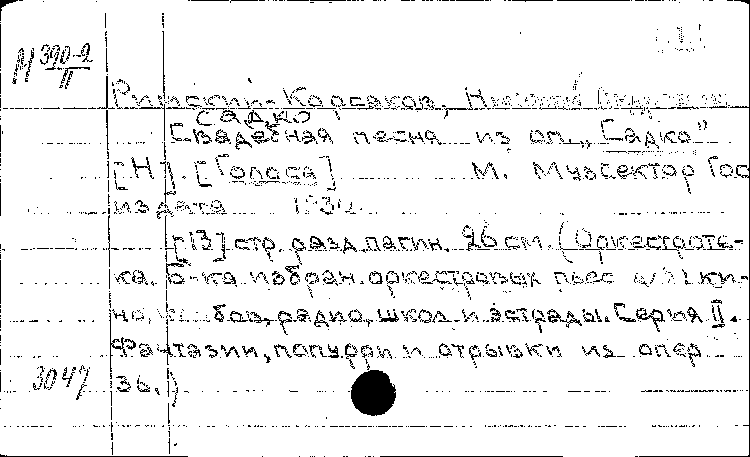 М 390-2
II
Римский-Корсаков,
Садко
Свадебная песня из оп. „Садко"
[Н]. [Голоса] М. Музсектор Гос
издата
[13] стр. разд. пагин. 26 см. (Оркестроте-
ка. Б-ка избран. оркестровых пьес для ки-
но, бов, радио, школ и эстрады. Серия II.
Фантазии, попурри и отрывки из опер
3047 36.)